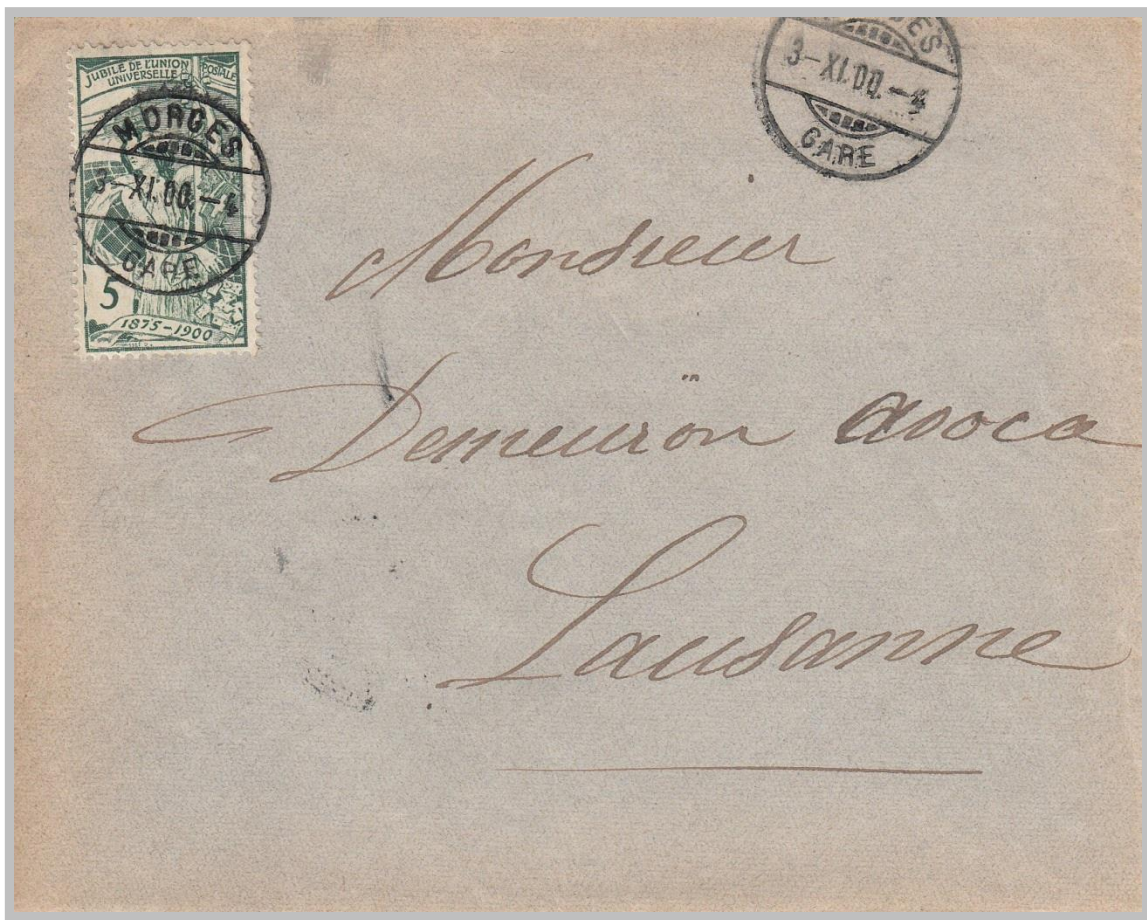 JUBILÉ DE L'UNION POSTALE
UNIVERSELLE
MORGES
3-XI.00.-4
GARE
5
1875-1900
3-XI.00.-4
GARE
Monsieur
Demeuron avoca
Lausanne